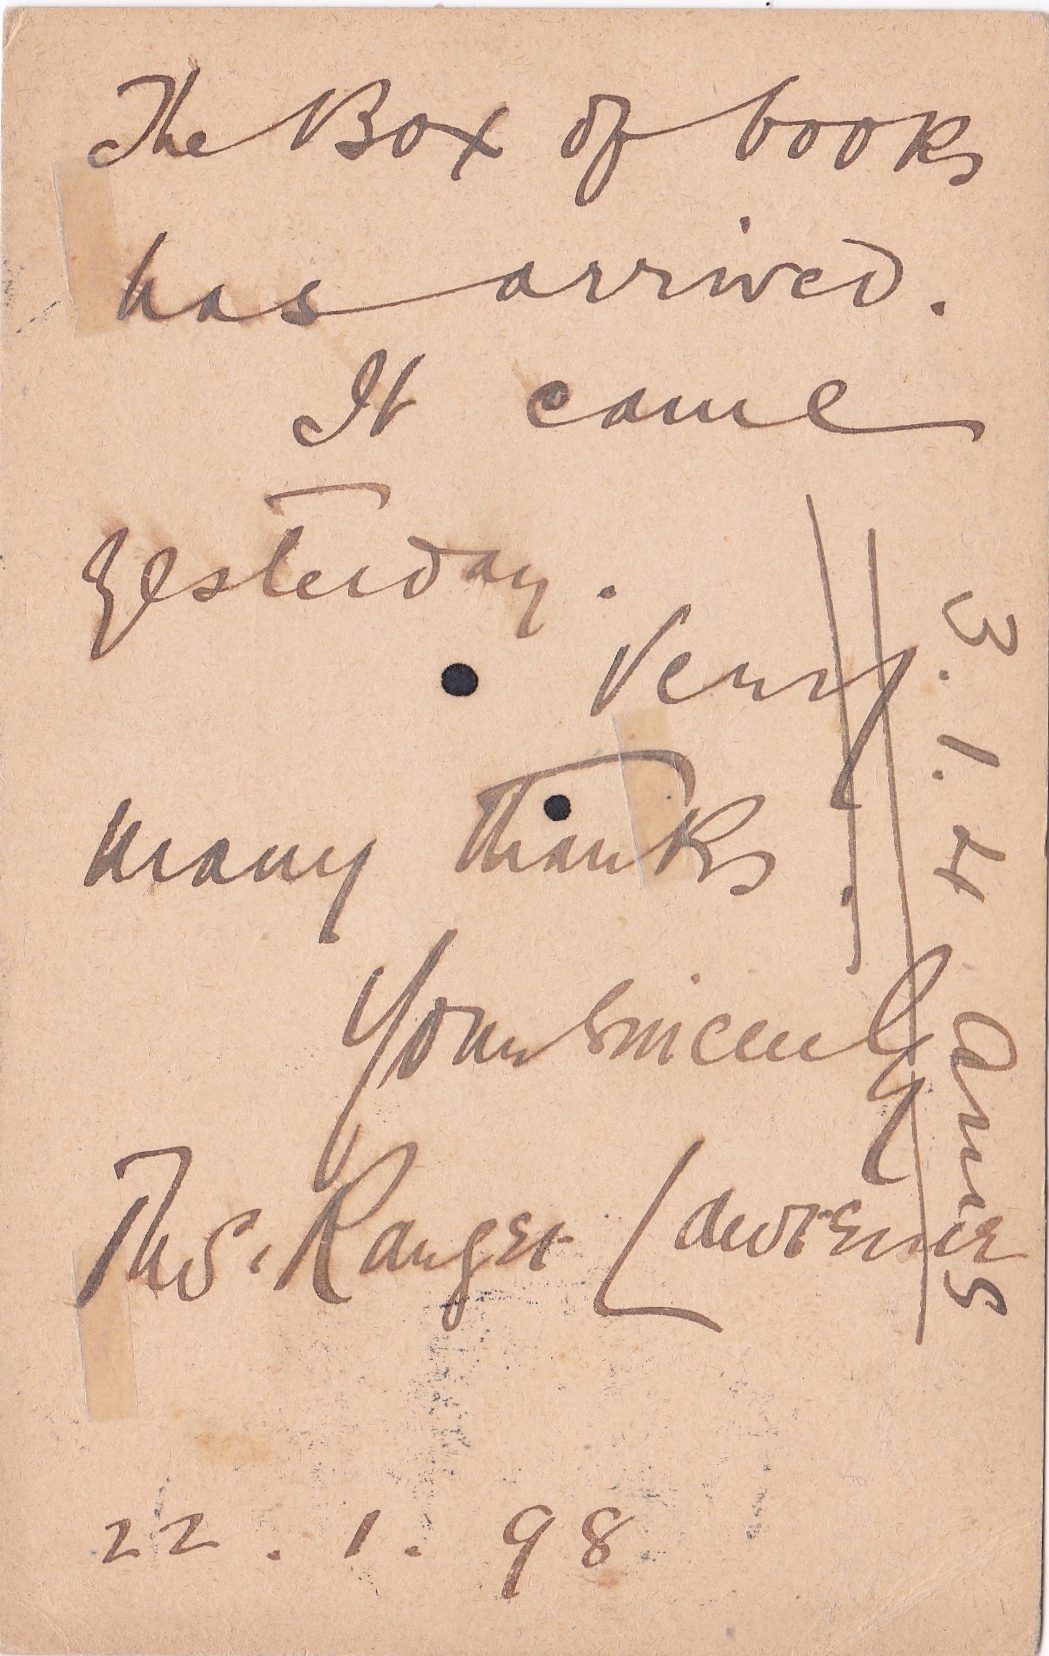 The Box of books
has arrived.
It came
yesterday.
Very
many thanks.
Yours sincerely
Thos. Ranger Lawrence
22.1.98
3.1.4